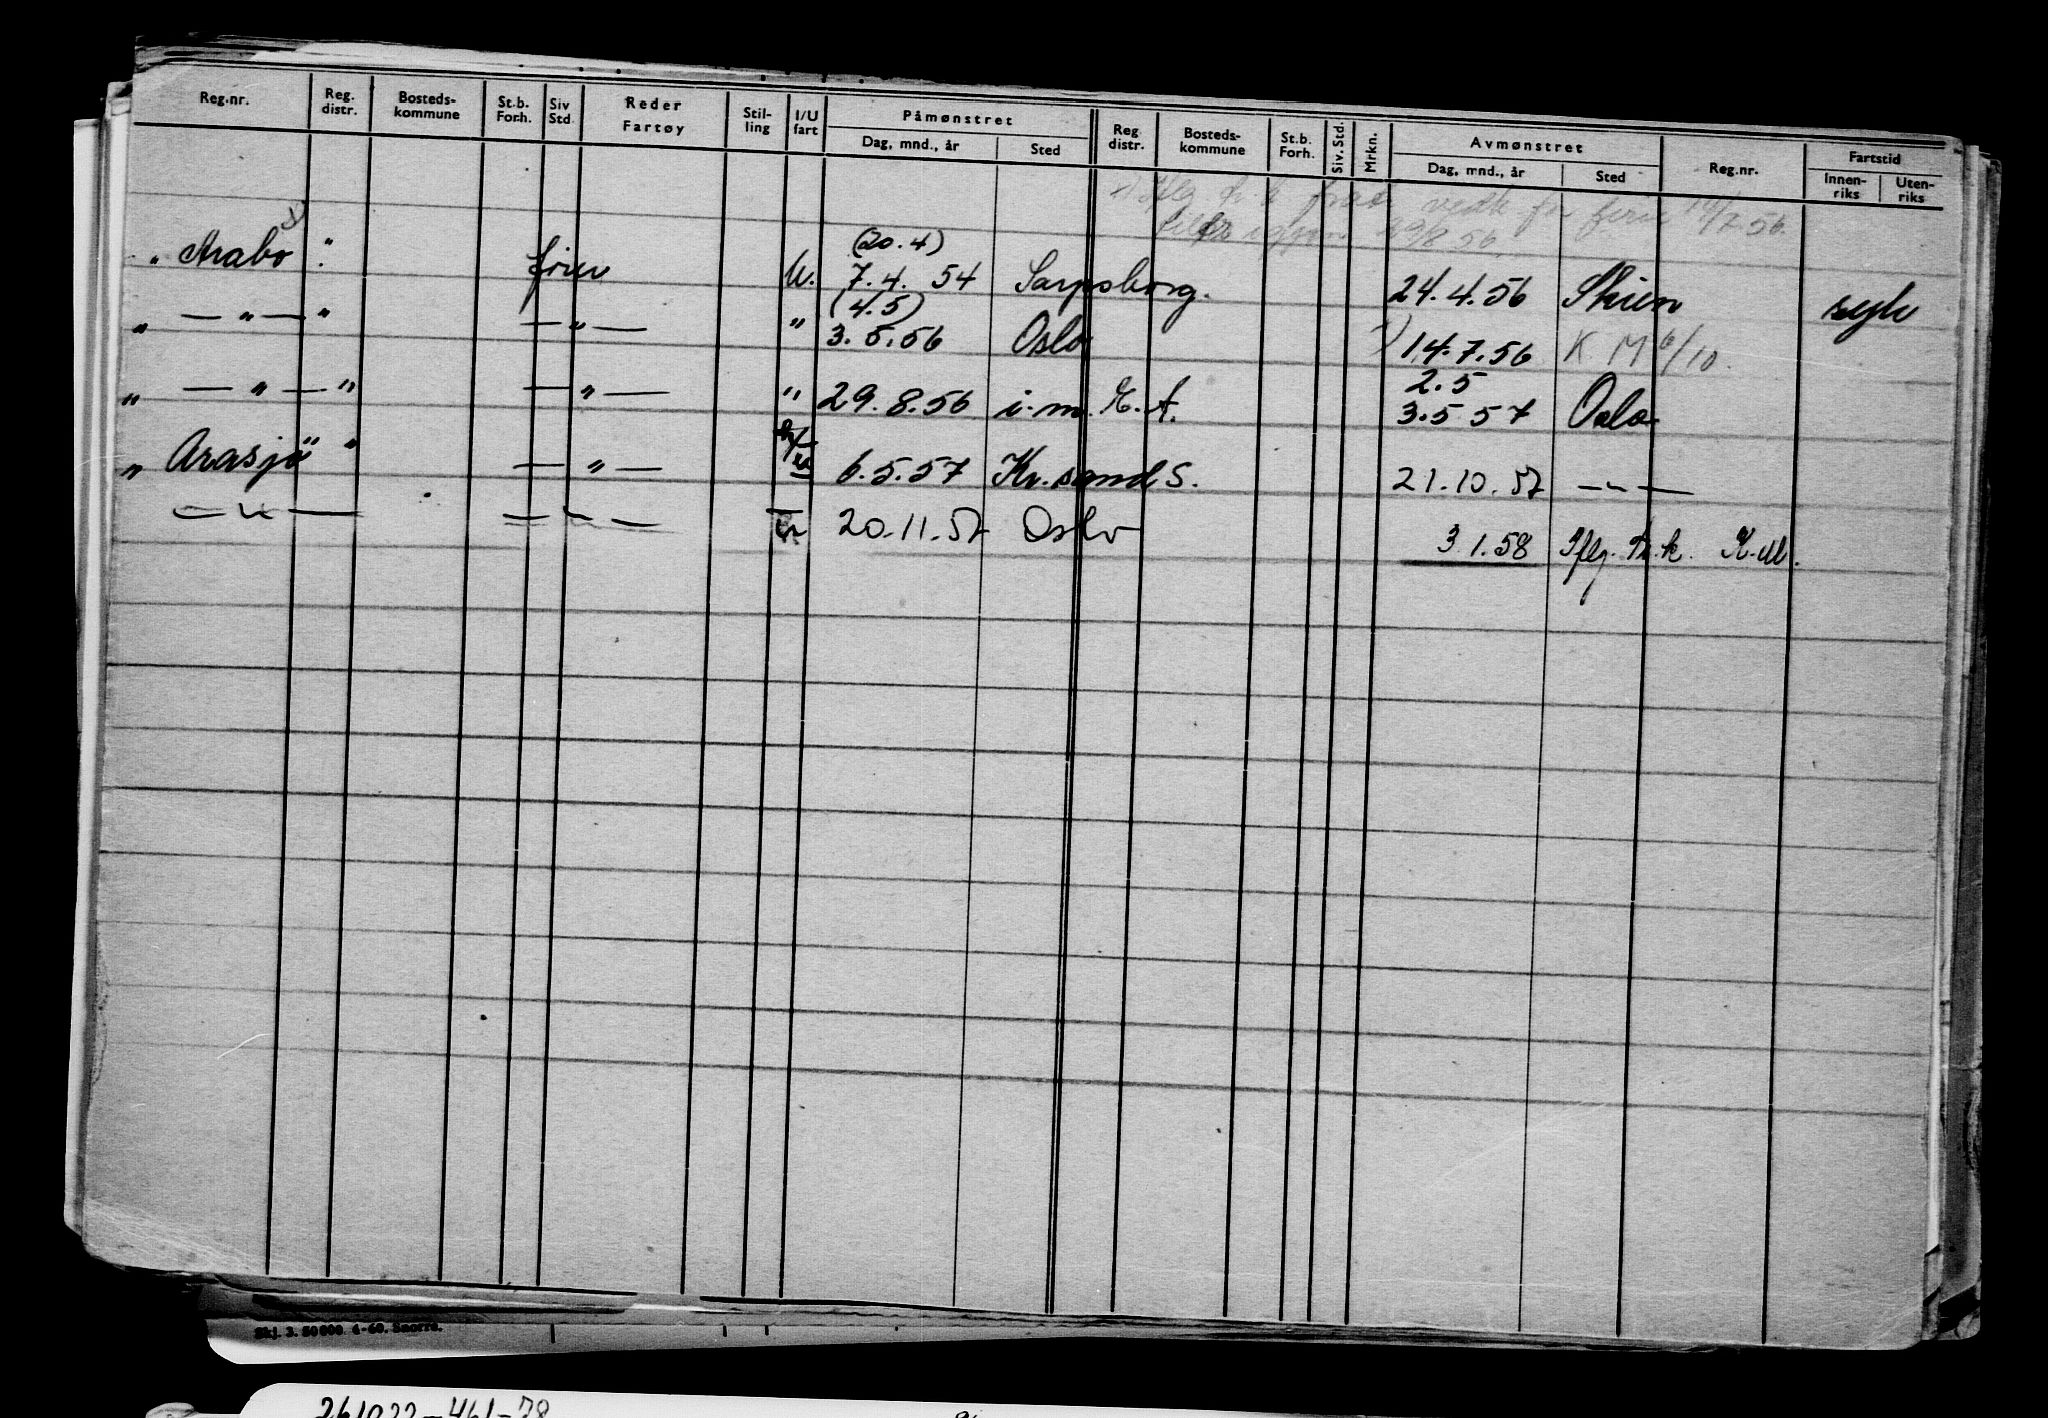 Reg.nr. Reg. distr. Bosteds-kommune St.b. Forh. Siv Std Reder Fartøy Stil-ling I/U fart Påmønstret Dag, mnd., år Sted Reg distr. Bosteds-kommune St.b. Forh. Siv. Std. Mrkn. Avmønstret Dag, mnd., år Sted Reg.nr. Fartstid Innen-riks Uten-riks
ferie 14/7.56.
29/8 56.
(20.4)
" Arabo " U. 7.4. 54 Sarpsborg. 24.4.56 Skien syk
(4.5)
" — " — " — " — " 3.5.56 Oslo 1) 14.7.56 K. M 6/10.
2.5
" — " — " — " — " 29.8.56 i.m. E.A. 3.5 57 Oslo
" Arasjø " — " — 6.5.57 Kr.sand S. 21.10.57 — " —
— " — — " — 20.11.57 Oslo 3.1.58 Iflg. tr.k. K.M.
Skj. 3. 50 000. 4-60. Snorre.
261022-461-78